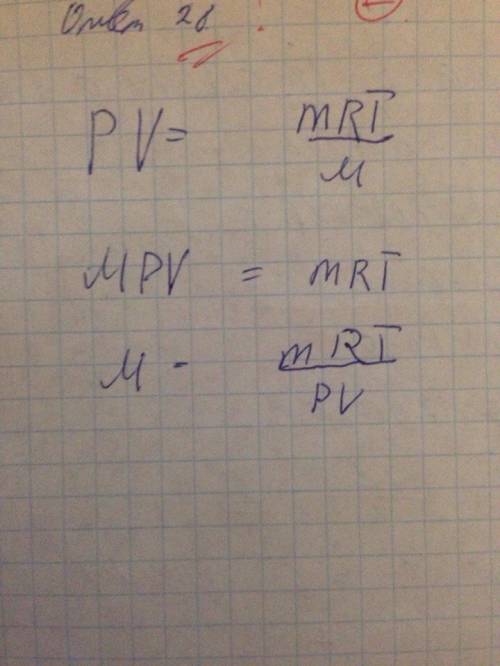 Ответ 28
PV = mRT / M
MPV = mRT
M - mRT / PV